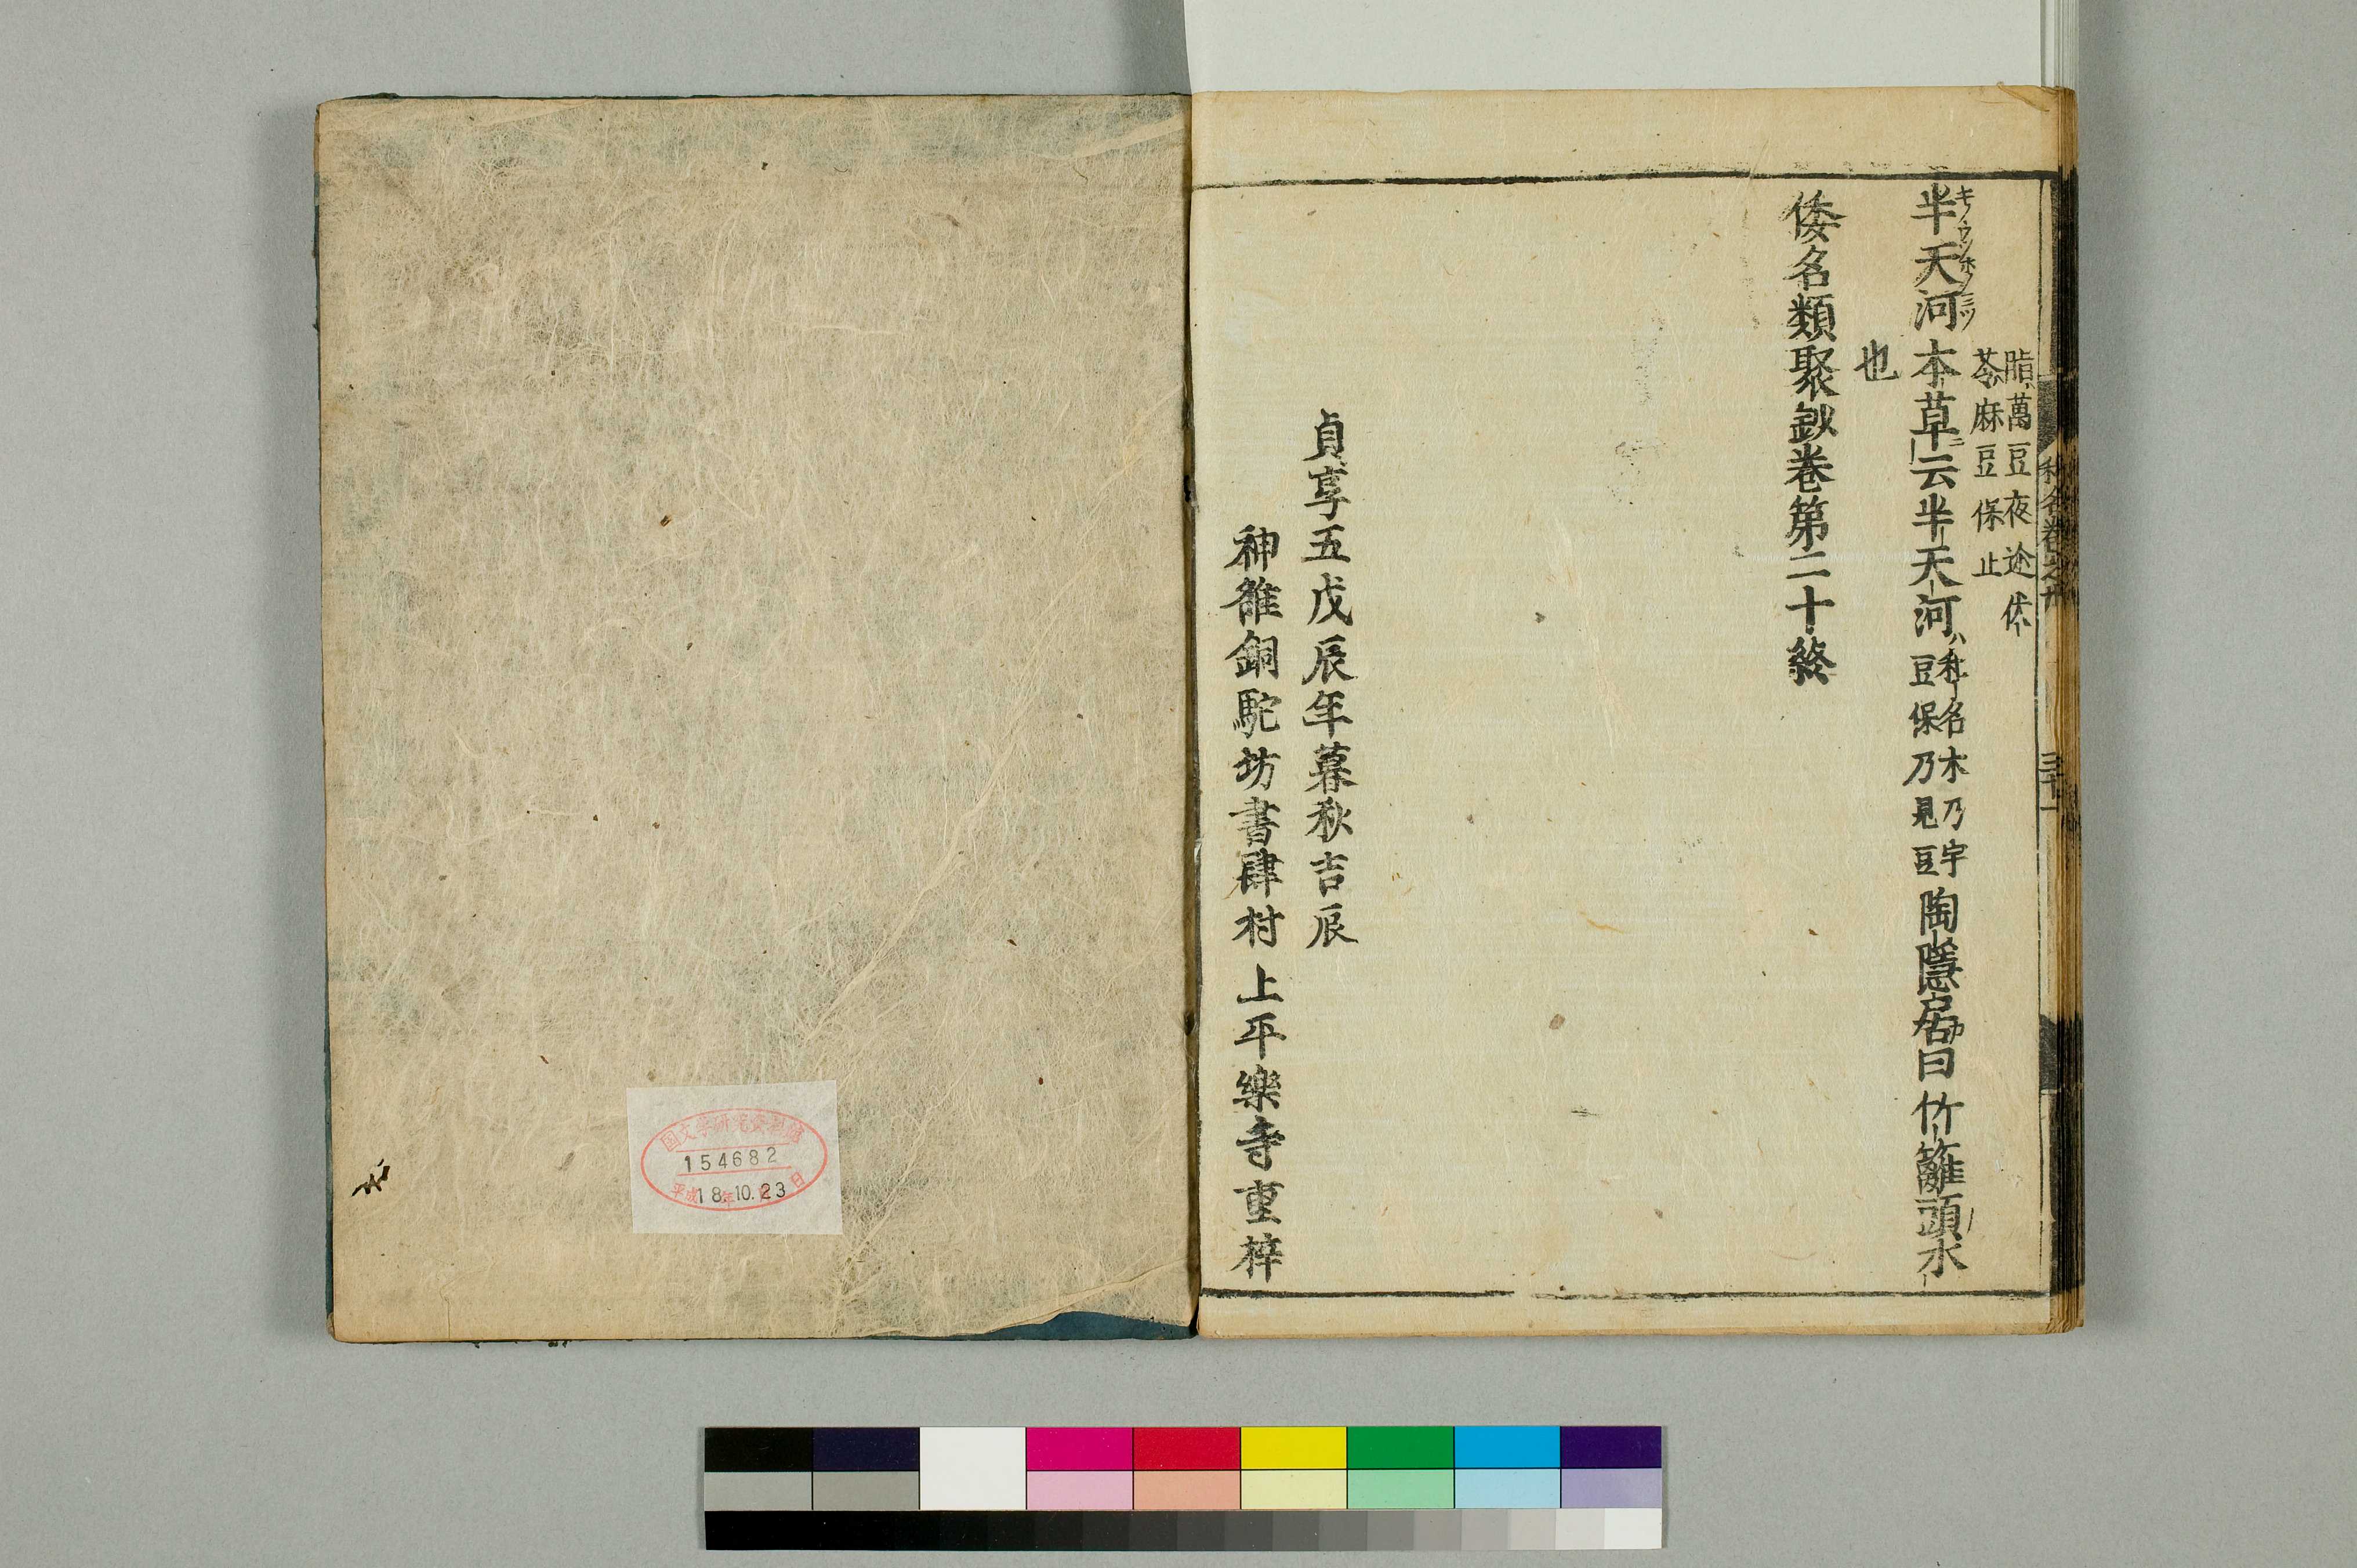 脂萬豆夜迩
苓麻豆保止
半天河本草云半天河和名木乃宇豆保乃見豆陶隱居曰竹籬頭水
キノウツホノミツ
也
倭名類聚鈔卷第二十終
貞享五戊辰年暮秋吉辰
神雒銅駝坊書肆村上平樂寺重梓
和名卷之廿
三十一
国文学研究資料館
154682
平成18年10.23日